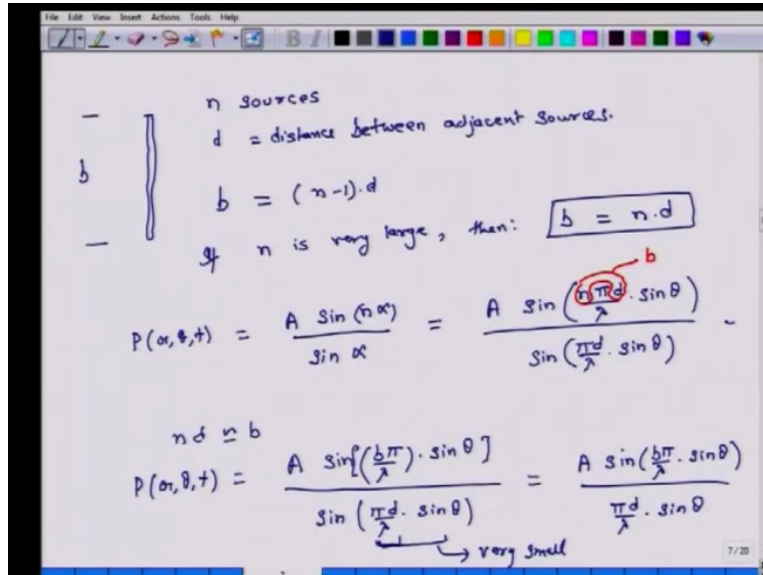 File Edit View Insert Actions Tools Help
B I
n sources
d = distance between adjacent sources.
b
b = (n-1).d
If n is very large, then: b = n.d
b
P(r,θ,t) = A sin(nα) / sin α = A sin(nπd/λ . sinθ) / sin(πd/λ . sinθ) -
nd ≃ b
P(r,θ,t) = A sin[(bπ/λ) . sinθ] / sin(πd/λ . sinθ) = A sin(bπ/λ . sinθ) / πd/λ . sinθ
→ very small
7/20